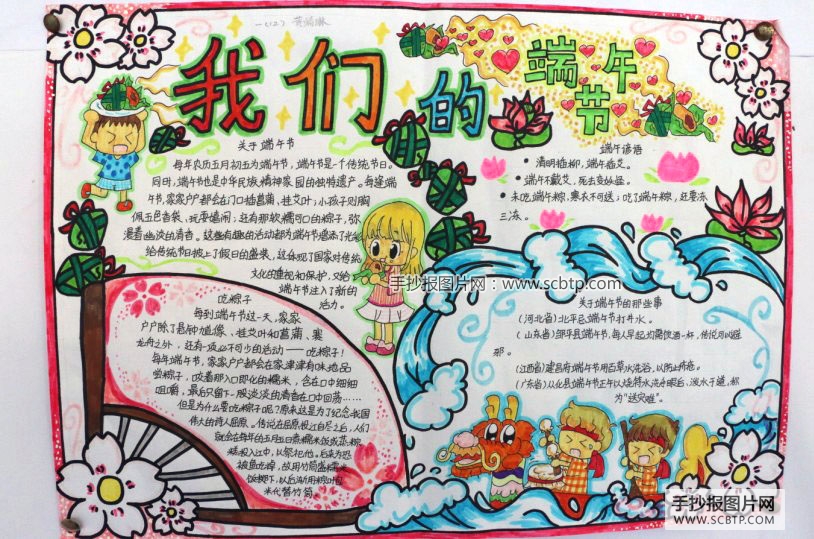 我们的
端午
节
关于端午节
每年农历五月初五为端午节，端午节是一个传统节日。
同时，端午节也是中华民族精神家园的独特遗产。每逢端
午节，家家户户都会在门口插菖蒲，挂艾叶；小孩子则胸
佩五色香袋、玩耍嬉闹；还有那软糯可口的粽子，弥
漫着幽淡的清香。这些有趣的活动都为端午节增添了光彩
给传统节日披上了假日的盛装，这体现了国家对传统
文化的重视和保护，又给
端午节注入了新的
活力。
吃粽子
每到端午节这一天，家家
户户除了悬钟馗像、挂艾叶和菖蒲、赛
龙舟之外，还有一项必不可少的活动——吃粽子！
每年端午节，家家户户都会在家津津有味地品
尝粽子，咬着那入口即化的糯米，含在口中细细
咀嚼，最后只留下一股淡淡的清香在口中回荡……
但是为什么要吃粽子呢？原来这是为了纪念我国
伟大的诗人屈原。传说在屈原投江自尽之后，人们
就会在每年的五月五日煮糯米饭或蒸粽
糕投入江中，以祭祀他。后来为恐
被鱼吃掉，故用竹筒盛糯米
饭掷下，以后渐用粽叶包
米代替竹筒。
端午谚语
清明插柳，端午插艾。
端午不戴艾，死去变妖怪。
未吃端午粽，寒衣不可送；吃了端午粽，还要冻
三冻。
关于端午节的那些事
（河北省）北平忌端午节打井水。
（山东省）邹平县端午节，每人早起均需饮酒一杯，传说可以避
邪。
（江西省）建昌府端午节用百草水洗浴，以防止疥疮。
（广东省）从化县端午节正午以烧符水洗手眼后，泼水于道，称
为“送灾难”。
手抄报图片网：www.scbtp.com
手抄报图片网
WWW.SCBTP.COM